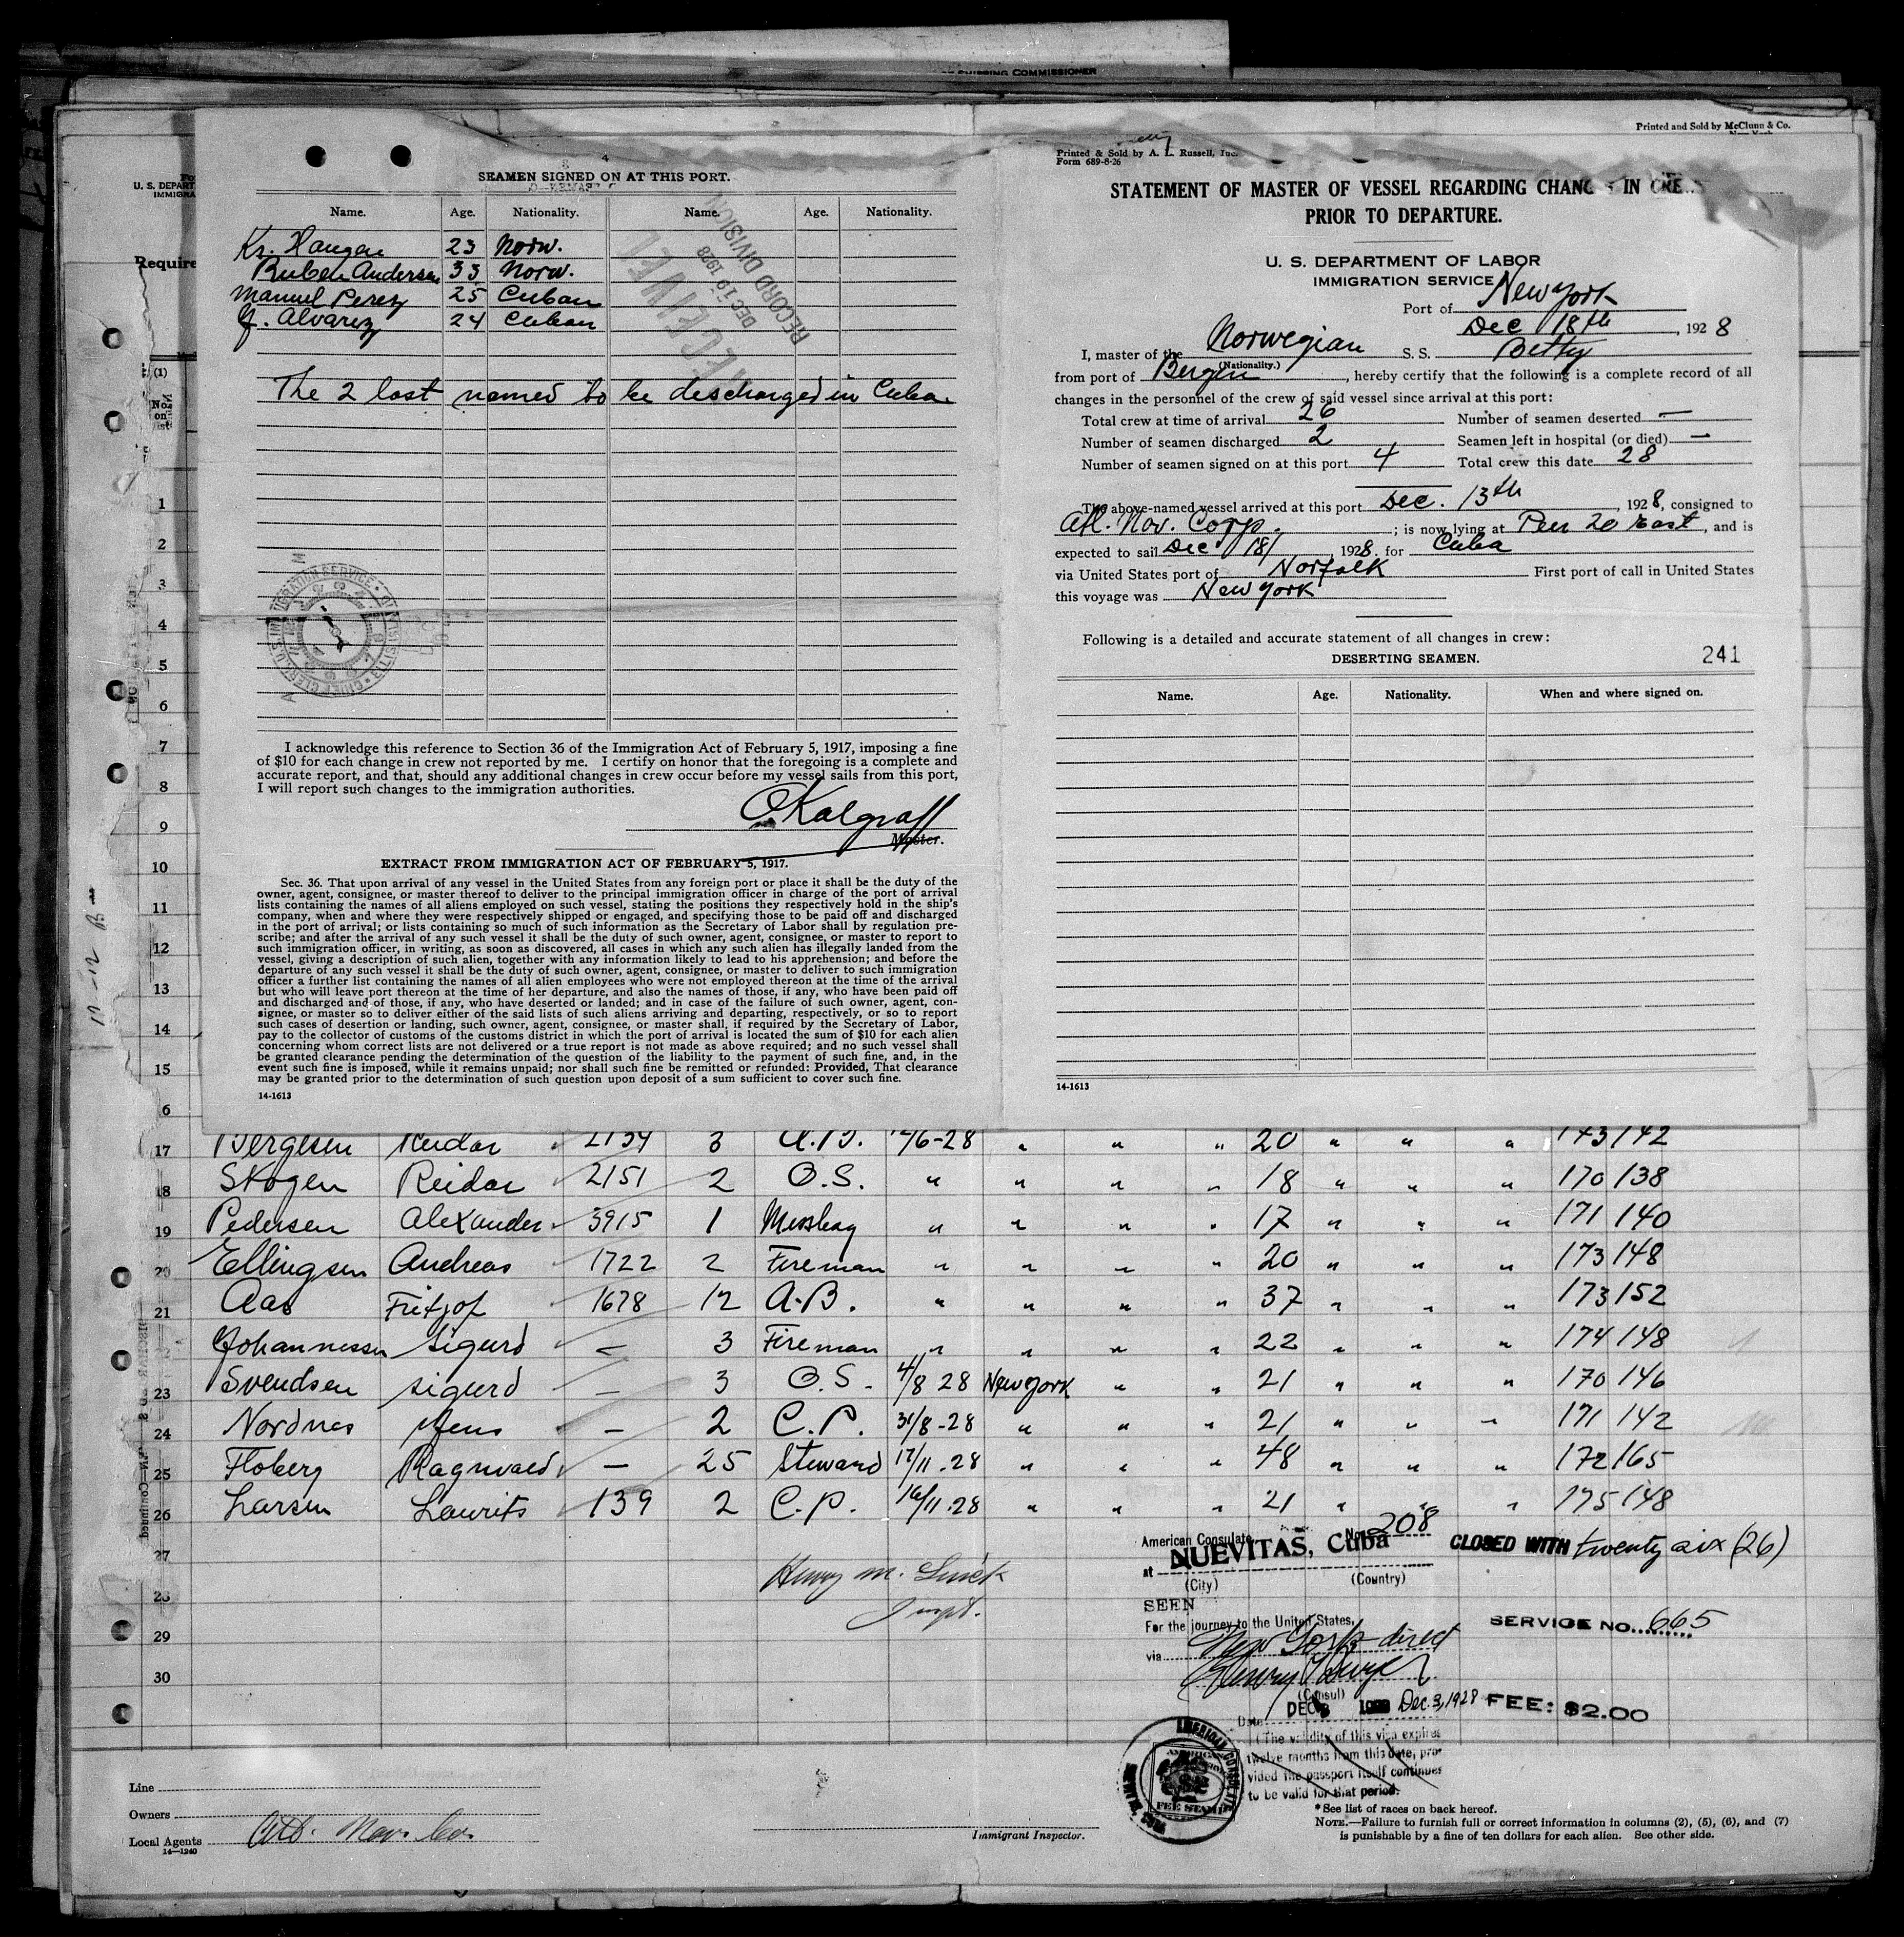 SHIPPING COMMISSIONER
Printed and Sold by McClunn & Co.
U. S. DEPART
IMMIGRA
Require
SEAMEN SIGNED ON AT THIS PORT.
Name. Age. Nationality. Name. Age. Nationality.
Kr. Haugen 23 Norw.
Ruben Andersen 33 Norw.
Manuel Perez 25 Cuban
J. Alvarez 24 Cuban
RECEIVED
DEC 19 1928
RECORD DIVISION
The 2 last named to be descharged in Cuba
I acknowledge this reference to Section 36 of the Immigration Act of February 5, 1917, imposing a fine
of $10 for each change in crew not reported by me. I certify on honor that the foregoing is a complete and
accurate report, and that, should any additional changes in crew occur before my vessel sails from this port,
I will report such changes to the immigration authorities.
O. Kalgraff
Master.
EXTRACT FROM IMMIGRATION ACT OF FEBRUARY 5, 1917.
Sec. 36. That upon arrival of any vessel in the United States from any foreign port or place it shall be the duty of the
owner, agent, consignee, or master thereof to deliver to the principal immigration officer in charge of the port of arrival
lists containing the names of all aliens employed on such vessel, stating the positions they respectively hold in the ship's
company, when and where they were respectively shipped or engaged, and specifying those to be paid off and discharged
in the port of arrival; or lists containing so much of such information as the Secretary of Labor shall by regulation pre-
scribe; and after the arrival of any such vessel it shall be the duty of such owner, agent, consignee, or master to report to
such immigration officer, in writing, as soon as discovered, all cases in which any such alien has illegally landed from the
vessel, giving a description of such alien, together with any information likely to lead to his apprehension; and before the
departure of any such vessel it shall be the duty of such owner, agent, consignee, or master to deliver to such immigration
officer a further list containing the names of all alien employees who were not employed thereon at the time of the arrival
but who will leave port thereon at the time of her departure, and also the names of those, if any, who have been paid off
and discharged and of those, if any, who have deserted or landed; and in case of the failure of such owner, agent, con-
signee, or master so to deliver either of the said lists of such aliens arriving and departing, respectively, or so to report
such cases of desertion or landing, such owner, agent, consignee, or master shall, if required by the Secretary of Labor,
pay to the collector of customs of the customs district in which the port of arrival is located the sum of $10 for each alien
concerning whom correct lists are not delivered or a true report is not made as above required; and no such vessel shall
be granted clearance pending the determination of the question of the liability to the payment of such fine, and, in the
event such fine is imposed, while it remains unpaid; nor shall such fine be remitted or refunded: Provided, That clearance
may be granted prior to the determination of such question upon deposit of a sum sufficient to cover such fine.
14-1613
Printed & Sold by A. L. Russell, Inc.
Form 689-8-26
STATEMENT OF MASTER OF VESSEL REGARDING CHANGE IN CREW
PRIOR TO DEPARTURE.
U. S. DEPARTMENT OF LABOR
IMMIGRATION SERVICE
Port of New York
Dec 18th, 1928
I, master of the Norwegian S. S. Betty
(Nationality.)
from port of Bergen, hereby certify that the following is a complete record of all
changes in the personnel of the crew of said vessel since arrival at this port:
Total crew at time of arrival 26 Number of seamen deserted —
Number of seamen discharged 2 Seamen left in hospital (or died) —
Number of seamen signed on at this port 4 Total crew this date 28
The above-named vessel arrived at this port Dec. 13th, 1928, consigned to
Atl. Nav. Corp.; is now lying at Pier 20 East, and is
expected to sail Dec 18/, 1928. for Cuba
via United States port of Norfolk First port of call in United States
this voyage was New York
Following is a detailed and accurate statement of all changes in crew:
DESERTING SEAMEN. 241
Name. Age. Nationality. When and where signed on.
14-1613
1
2
3
4
5
6
7
8
9
10
11
12
13
14
15
6
17 Bergesen Reidar 2154 3 A.B. 12/6-28 " " " 20 " " " 173 142
18 Skogen Reidar 2151 2 O.S. " " " " 18 " " " 170 138
19 Pedersen Alexander 3915 1 Messboy " " " " 17 " " " 171 140
20 Ellingsen Andreas 1722 2 Fireman " " " " 20 " " " 173 148
21 Aas Fritjof 1678 12 A.B. " " " " 37 " " " 173 152
Johannessen Sigurd — 3 Fireman " " " " 22 " " " 174 148
23 Svendsen Sigurd — 3 O.S. 4/8 28 New York " " 21 " " " 170 146
24 Nordnes Jens — 2 C.P. 31/8-28 " " " 21 " " " 171 142
25 Floberg Ragnvald — 25 Steward 12/11-28 " " " 48 " " " 172 165
26 Larsen Laurits 139 2 C.P. 16/11-28 " " " 21 " " " 175 148
27
28
29
30
Henry M.
Inspt.
American Consulate No. 208
at NUEVITAS, Cuba
(City) (Country)
CLOSED WITH twenty six (26)
SEEN
For the journey to the United States,
via New York direct
(Consul)
SERVICE NO. 665
Date DEC 3 Dec. 3, 1928
FEE: $2.00
(The validity of this visa expires
twelve months from this date, pro-
vided the passport itself continues
to be valid for that period.
AMERICAN CONSULATE
FEE STAMP
Line
Owners
Local Agents Atl. Nav. Co.
14—1240
Immigrant Inspector.
* See list of races on back hereof.
NOTE.—Failure to furnish full or correct information in columns (2), (5), (6), and (7)
is punishable by a fine of ten dollars for each alien. See other side.